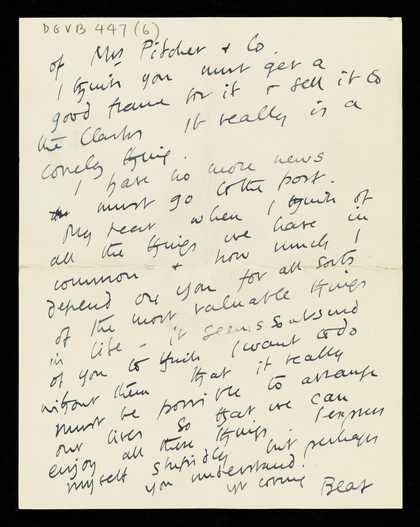 DGVB 447 (6)
of Mrs Pitcher & Co.
I think you must get a
good frame for it & sell it to
the Clarks It really is a
lovely thing.
I have no more news
must go to the post.
My heart when I think of
all the things we have in
common & how much I
depend on you for all sorts
of the most valuable things
in life – it seems so absurd
of you to think I want to do
without them that it really
must be possible to arrange
our lives so that we can
enjoy all these things. I express
myself stupidly but perhaps
you understand.
yr loving Beat